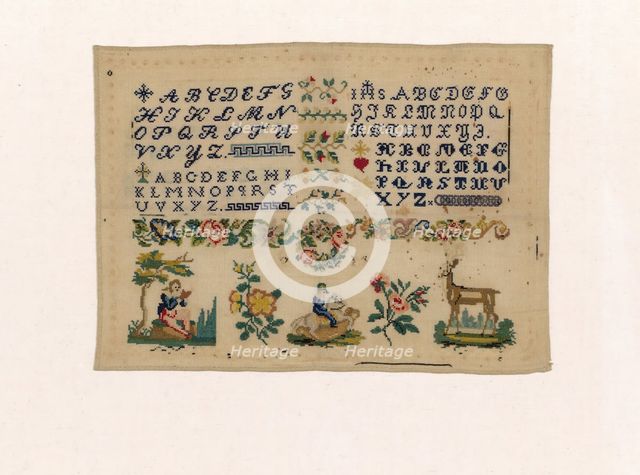 ABCDEFG
HIKLMN
OPQRSTU
VXYZ.
ABCDEFGHI
KLMNOPQRST
UVXYZ.
ABCDEFG
HIKLMNOPQ
UVXYZ.
ABCDEFG
HIKLMN
OPQRSTUV
XYZ
Heritage
Heritage
Heritage
Heritage
Heritage
Heritage
Heritage
Heritage